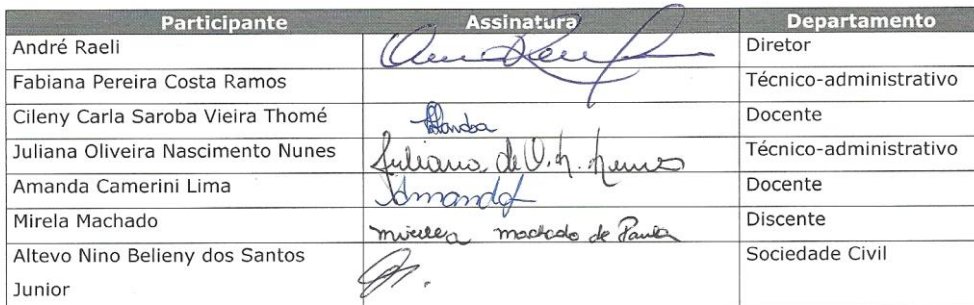 Participante Assinatura Departamento
André Raeli Diretor
Fabiana Pereira Costa Ramos Técnico-administrativo
Cileny Carla Saroba Vieira Thomé Docente
Juliana Oliveira Nascimento Nunes Juliana de O. N. Nunes Técnico-administrativo
Amanda Camerini Lima Amanda Docente
Mirela Machado Mirella machado de Paula Discente
Altevo Nino Belieny dos Santos Sociedade Civil
Junior